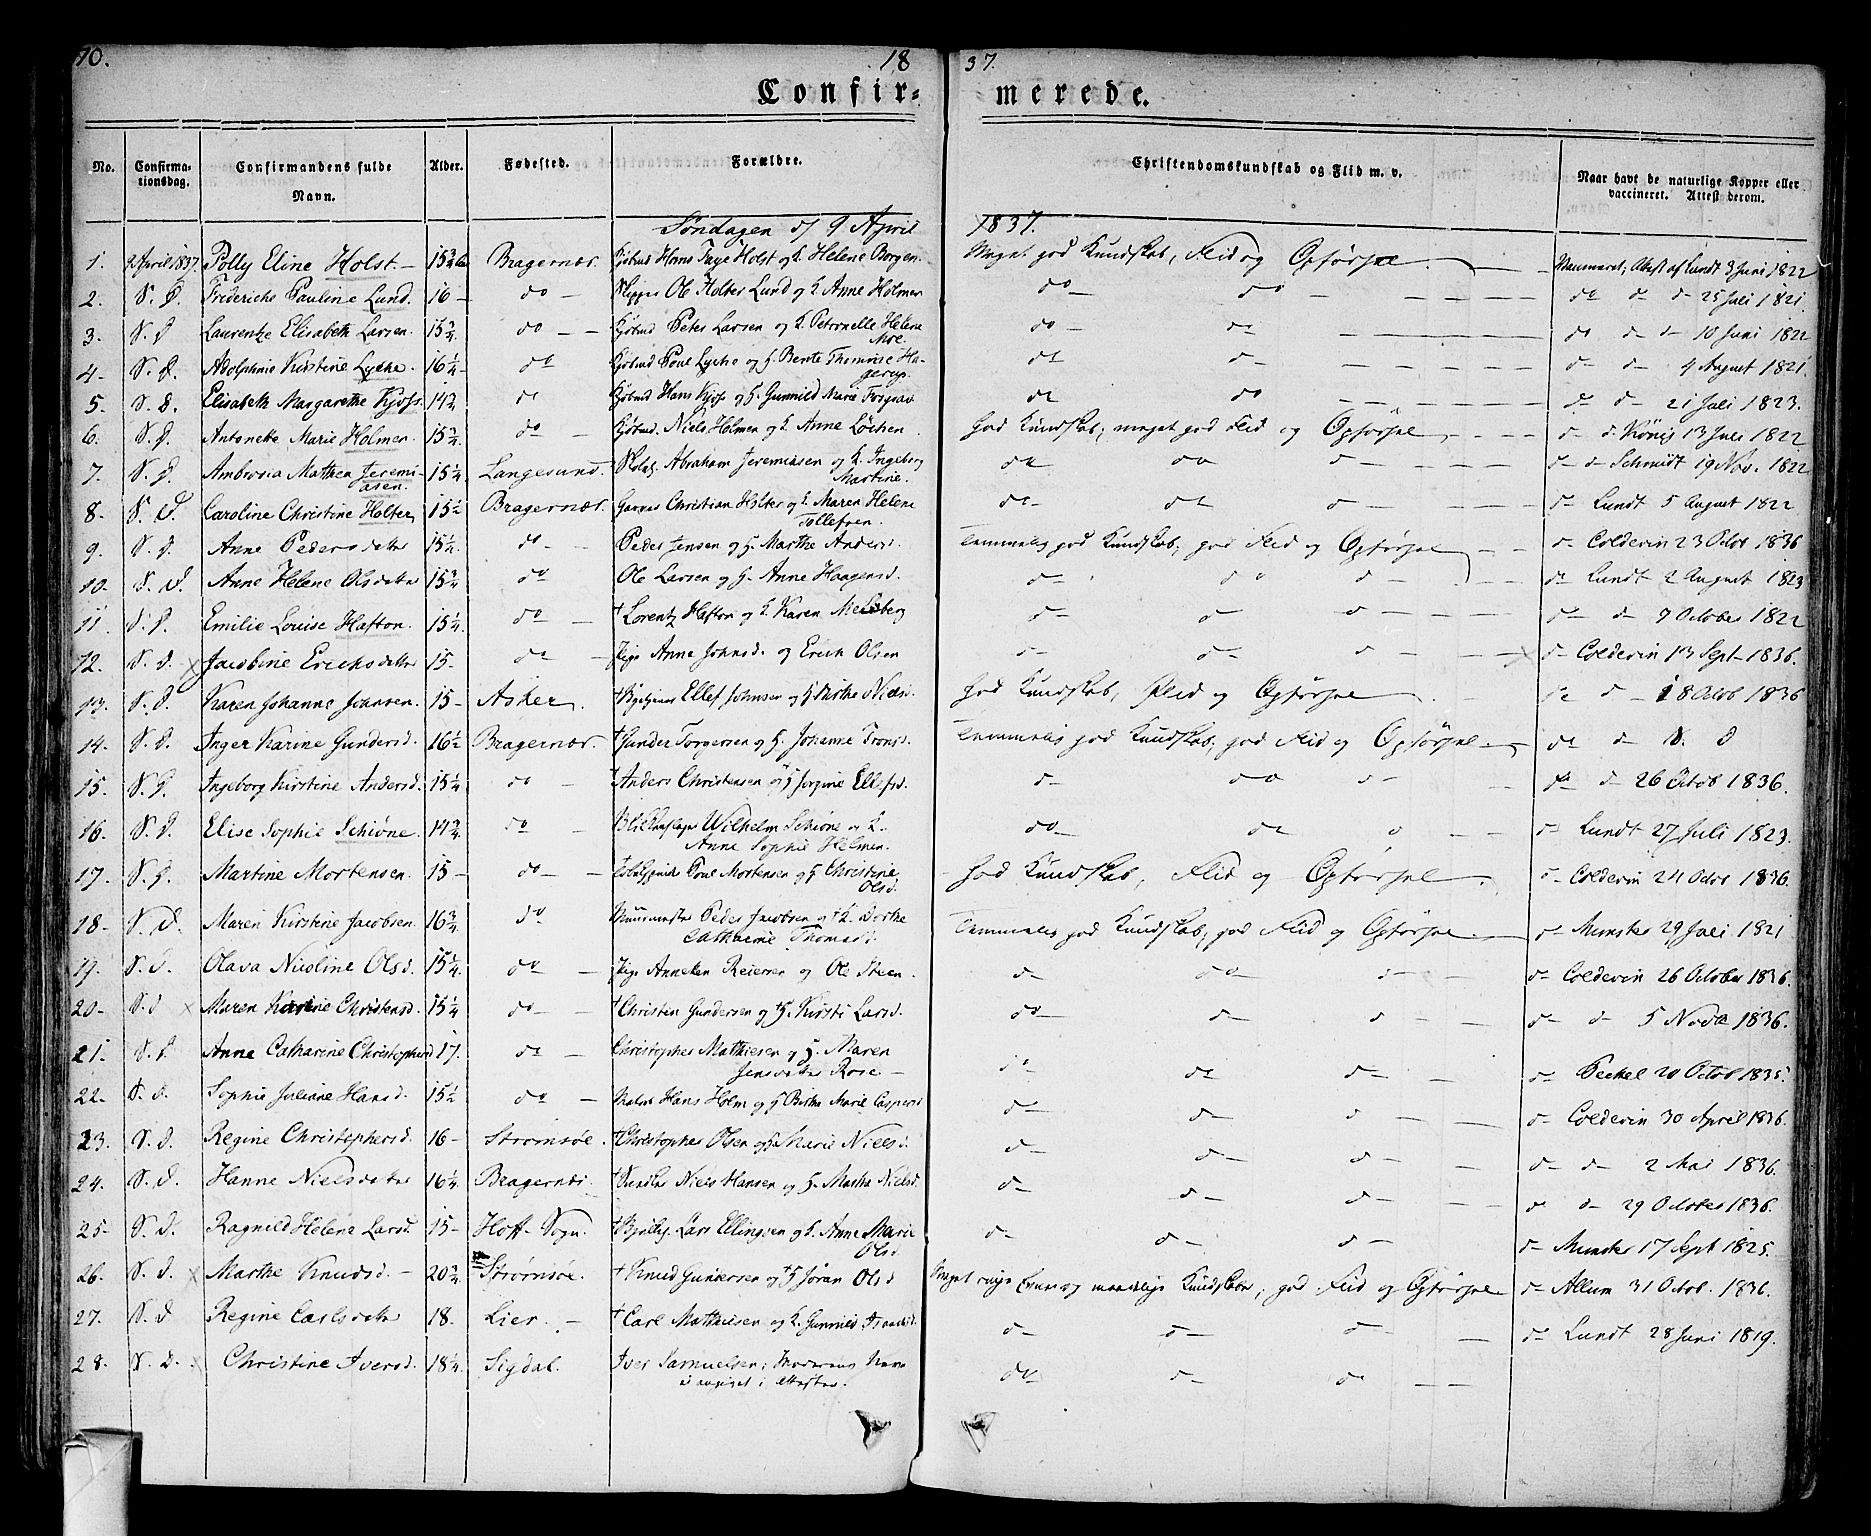 70. 18 37.
Confir- merede.
No. Confirma-tionsdag. Confirmandens fulde Navn. Alder. Fødested. Forældre. Christendomskundskab og Flid m. v. Naar havt de naturlige Kopper eller vaccineret. Attest derom.
Søndagen d 9 April 1837.
1. 9 April 1837. Polly Eline Holst. – 15 3/4 Bragernæs. Kjøbmd Hans Faye Holst og H. Helene Borgen. Meget god Kundskab, Flid og Opførsel. Attest af Lundt 3 Juni 1822
2. S. D. Frederiche Pauline Lund. 16 – do – Skipper Ole Holter Lund og H. Anne Holmen do – do – do do d– 25 Juli 1821.
3. S. D Laurentze Elisabeth Larsen. 15 3/4. do – – Kjøbmd Peter Larsen og H. Petronelle Helene Moe. do – do do do d– 10 Juni 1822
4. S. D. Adolphine Kirstine Lyche. 16 1/4. do Kjøbmd Poul Lyche og H. Bente Thomine Hagerup. do d– d– d– 4 August 1821.
5. S. D. Elisabeth Margarethe Kjøss. 14 3/4 do Kjøbmd Hans Kjøss og H. Gunnild Marie do do do d– 21 Juli 1823.
6. S. D. Antonette Marie Holmen. 15 3/4. do – Kjøbmd. Niels Holmen og H. Anne Løchen. God Kundskab; meget god Flid og Opførsel. d– d. König 13 Juli 1822
7. S. D. Ambrosia Mathea Jeremiasen. 15 1/4. Langesund. Abraham Jeremiasen og H. Ingeborg Martine. do do d– d– d– Schmidt 19 Nov. 1822
8. S. D. Caroline Christine Holter. 15 1/2 Bragernæs. Christian Holter og H. Maren Helene Tollefsen. do – do d – d– Lundt 5 August 1822
9. S. D. Anne Pedersdatter 15 1/4. do – – Peder Jensen og H. Marthe Andersd. Temmelig god Kundskab; god Flid og Opførsel d– Coldevin 23 Octob 1836
10. S. D. Anne Helene Olsdatter 15 3/4 do Ole Larsen og H. Anne Haagensd. d– do d – do Lundt 2 August 1823
11. S. D. Emilie Louise Hafton. 15 1/4. do – † Lorentz Hafton og H. Karen Melsberg d– d– d – d– d– 7 October 1822
12. S. D. × Jacobine Ericksdatter 15 – do – Pige Anne Johnsd. og Erich Olsen d– d– d – d– Coldevin 13 Sept 1836.
13. S. D. Karen Johanne Johnsen. 15 – Asker. † Ellef Johnsen og H Birthe Nielsd. God Kundskab, Flid og Opførsel. do d – 18 Octob 1836
14. S. D. Inger Karine Gundersd. 16 1/2 Bragernæs. † Gunder Torgersen og H. Johanne Temmelig god Kundskab; god Flid og Opførsel – do d– S. D
15. S. D. Ingeborg Kirstine Andersd. 15 1/4 do – † Anders Christensen og H Jorgine Ellefsd. d– do d– do d– 26 Octob 1836.
16. S. D. Elise Sophie Schiøne. 14 3/4. do – Blikkenslager Wilhelm Schiøne og H. Anne Sophie Helmen. do – do d – d– Lundt 27 Juli 1823.
17. S. D. Martine Mortensen. 15 – do – – Poul Mortensen og H Christine Olsd. God Kundskab, Flid og Opførsel. d– Coldevin 24 Octob 1836.
18. S. D. Maren Kirstine Jacobsen. 16 3/4 do Muurmester Peder Jacobsen og † H. Dorthe Catharine Thomasd. Temmelig god Kundskab; god Flid og Opførsel. d– Munster 29 Juli 1821
19. S. D. Olava Nicoline Olsd. 15 1/4. do – Pige Anneken Reiersen og Ole Steen. d– do – d– d– Coldevin 26 October 1836.
20. S. D × Maren Karine Christensd. 15 1/4 do – – † Christen Gundersen og † H. Kirsti Larsd. do – d– d – d– d– 5 Novbr 1836.
21. S. D. Anne Catharine Christophersd 17. do – Christopher Mathiesen og H. Maren Jensdatter Rose – do do d– d– Peckel 20 Octob 1835.
22. S. D. Sophie Juliane Hansd. 15 1/2 do – Hans Holm og H Birthe Marie Caspersd d– d– d – d– Coldevin 30 April 1836.
23. S. D. Regine Christophersd. 16 – Strømsøe. † Christopher Olsen og H Marie Nielsd. d– d– d– d– d– 2 Mai 1836.
24. S. D. Hanne Nielsdatter 16 1/4. Bragernæs. † Niels Hansen og H. Martha Nielsd. d– d– d– d– d– 29 October 1836.
25. S. D. Ragnild Helene Larsd. 15 – Hoff Sogn. † Lars Ellingsen og H. Anne Marie Olsd. d– d– d– d– Munster 17 Sept 1825.
26. S. D. × Marthe Knudsd. – 20 3/4 Strømsøe. † Knud Gundersen og † H Jøran Olsd Meget ringe Evner og maadelig Kundskab; god Flid og Opførsel d– Allum 31 Octob. 1836.
27. S. D Regine Carlsdatter 18. Lier. – † Carl Mathiesen og H. Gunnild d– d– d– d– Lundt 28 Juni 1819.
28. S. D. × Christine Iversd. 18 1/4. Sigdal. Iver Samuelsen; Moderens Navn ei angivet i Attesten. do d– d–